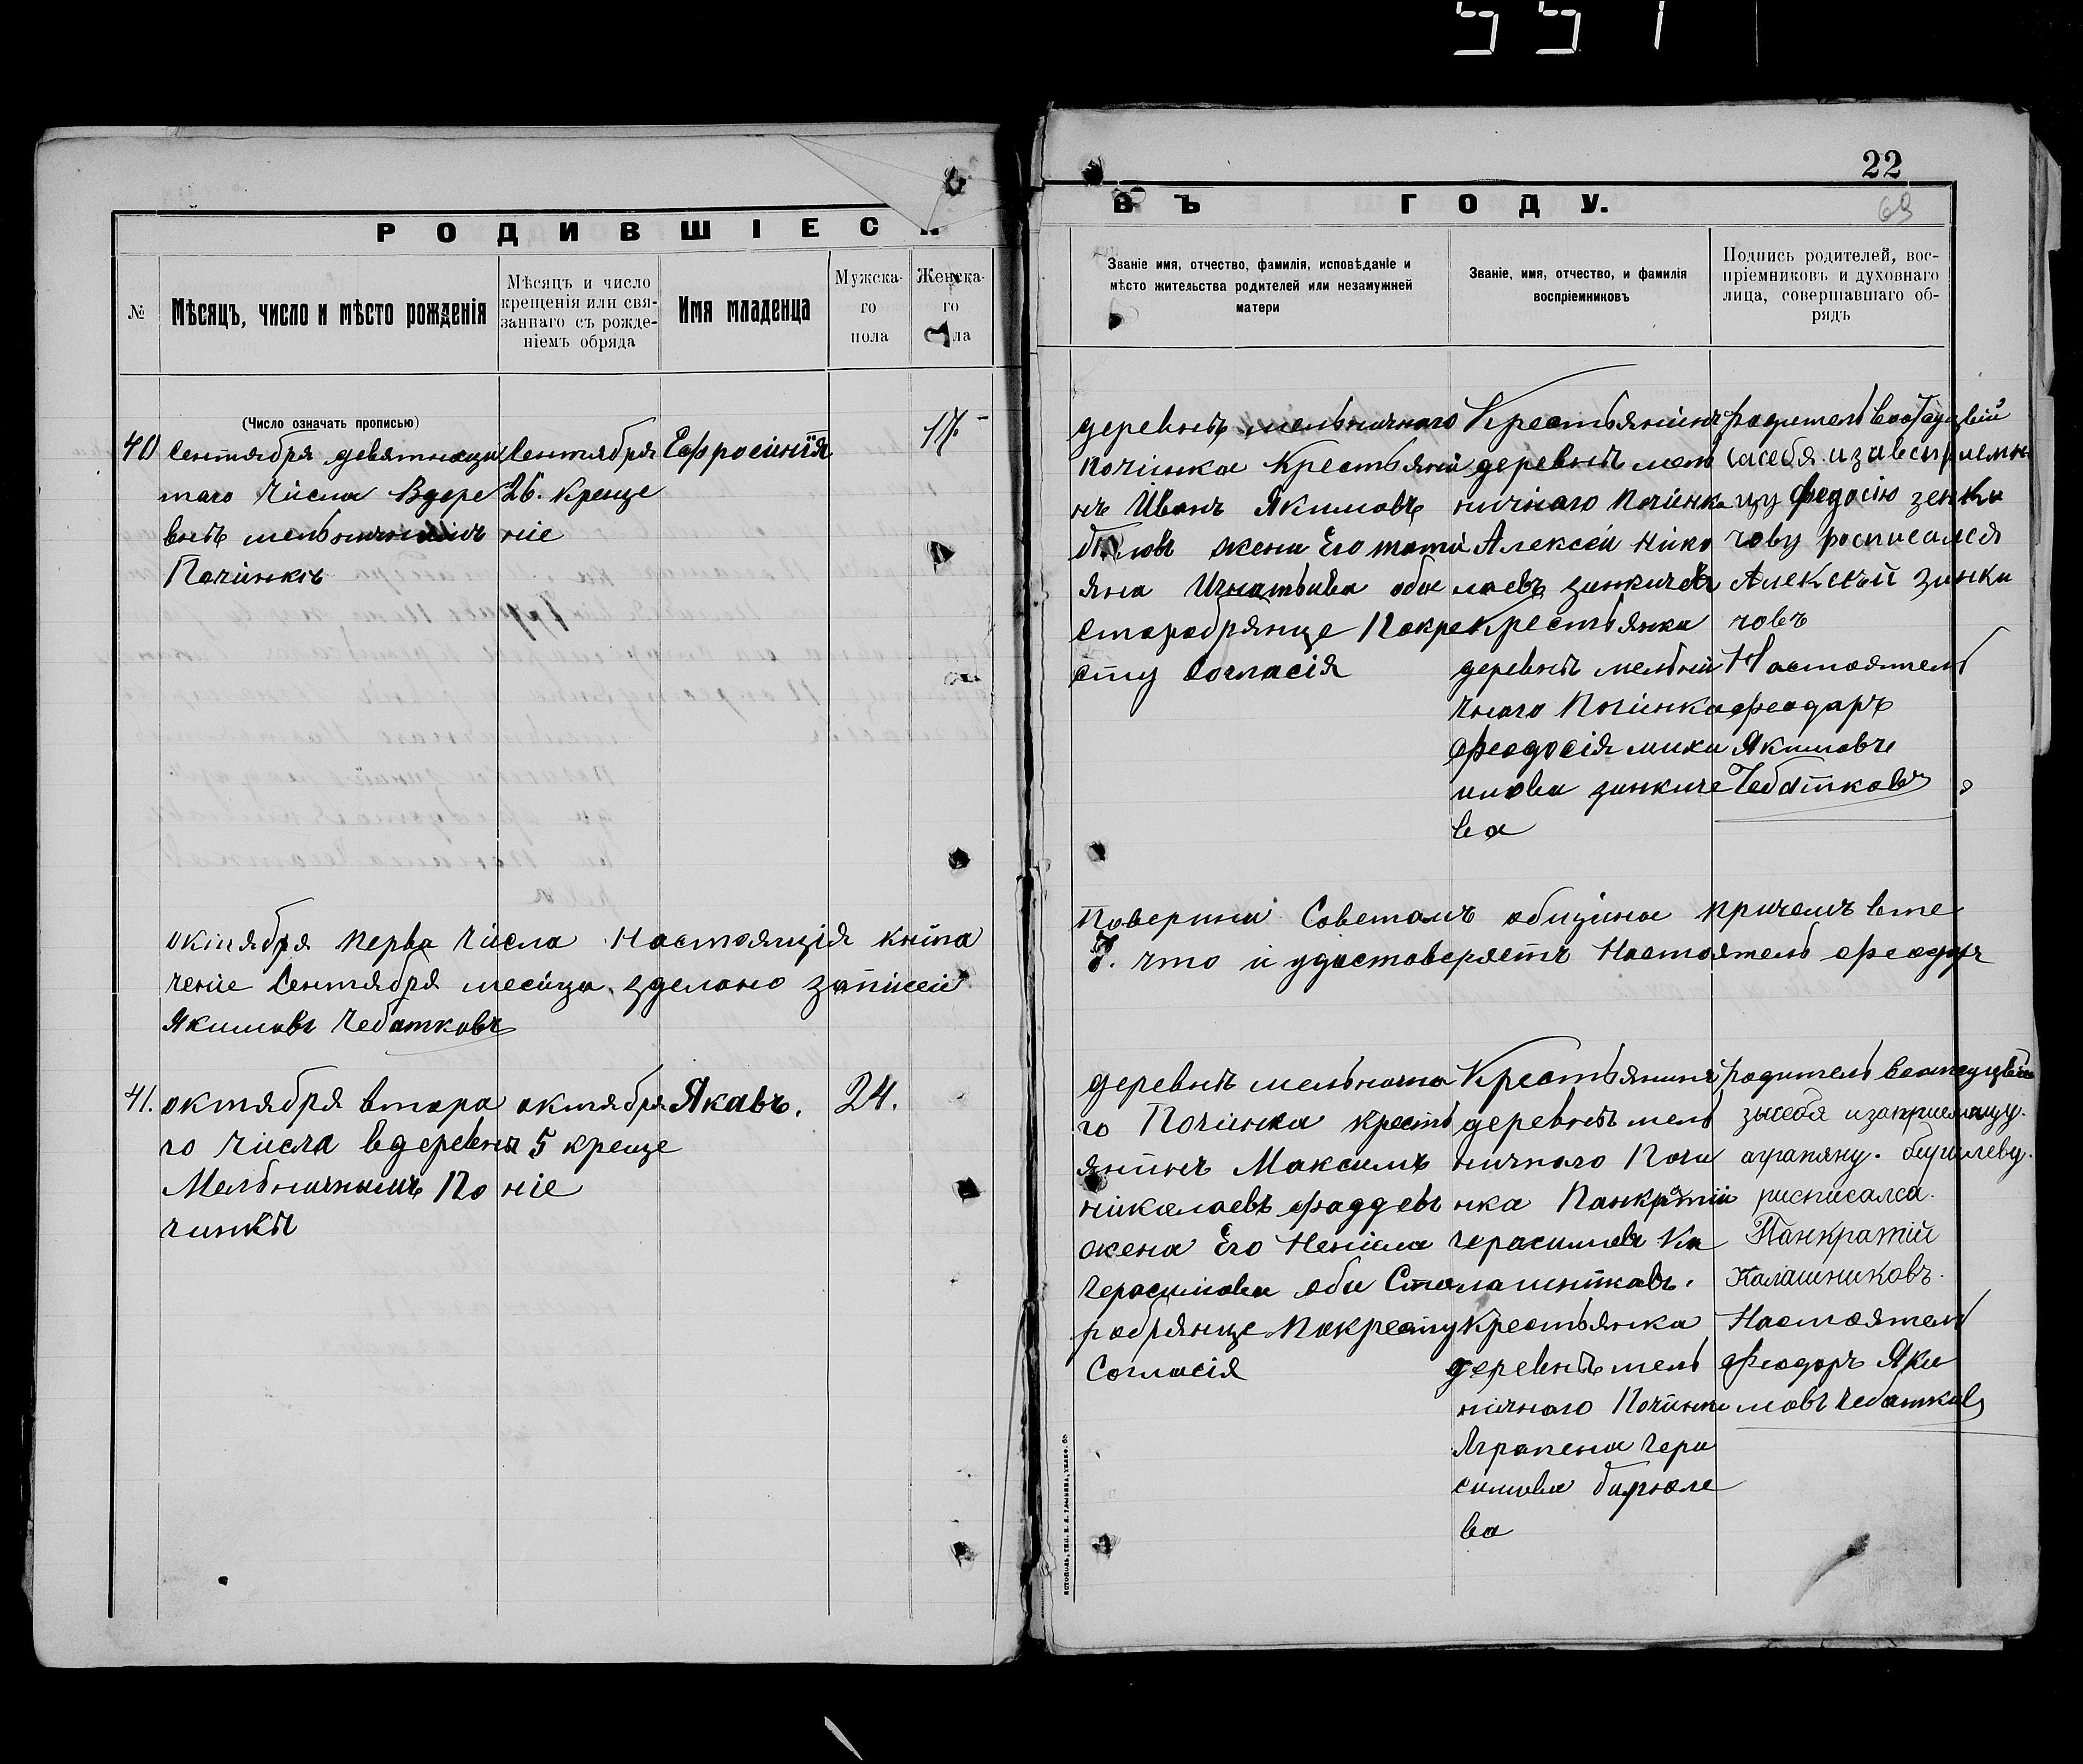 551
22
69
РОДИВШІЕС
ВЪ ГОДУ.
№
Мѣсяцъ, число и мѣсто рожденія
Мѣсяцъ и число
крещенія или свя-
заннаго съ рожде-
ніемъ обряда
Имя младенца
Мужска-
го
пола
Женска-
го
ла
Званіе имя, отчество, фамилія, исповѣданіе и
мѣсто жительства родителей или незамужней
матери
Званіе, имя, отчество, и фамилія
воспріемниковъ
Подпись родителей, вос-
пріемниковъ и духовнаго
лица, совершавшаго об-
рядъ
(Число означать прописью)
40
Сентября девятнаци
таго Числа Вдере
внѣ мельничным
Починкѣ
Сентября
26. Креще
ніе
Ефросинія
17
деревнѣ мельничнаго
Починка Крестьяни
нъ Иванъ Якимовъ
жена Его тоти
яна Игнатьива оби
Старобрянце Покре
сту Согласія
Крестьянинъ
деревнѣ мел
ничнаго Починка
Алексеи Нико
лаевъ зинкичев
Крестьянка
деревнѣ мелни
чнаго Починка
Феодосія михи
илова зинкиче
ва
родитель
засебя изавеспріемни
цу Федосію зенки
чову росписался
Алексѣй зинки
човъ
Настоятель
Феодаръ
Якимовъ
Чебатковъ
октября перва Числа Настоящія книга
Поверина Советомъ общины причемъ вте
ченіе Сентября месяца зделано записей
7. что и удостоверяетъ Настоятель Феодоръ
Якимовъ Чебатковъ
41.
октября втора
го Числа вдеревны
Мельничнымъ По
чинкѣ
октября
5 креще
ніе
Якавъ.
24.
деревнѣ мельнична
го Починка кресть
янинъ Максимъ
николаевъ фаддевъ
жена Его Ненила
Герасимова оби Ста
робрянце Покресту
Согласія
Крестьянинъ
деревнѣ мел
ничнаго Почи
нка Панкратій
герасимовъ Ка
лашниковъ.
Крестьянка
деревнѣ мел
ничнаго Починка
Аграпена гера
симова бирюле
ва
родитель
засебя изапріемницу.
аграпяну.
рисписалса.
Панкратій
Калашниковъ.
Настоятел
Феодоръ Яки
мовъ Чебатковъ